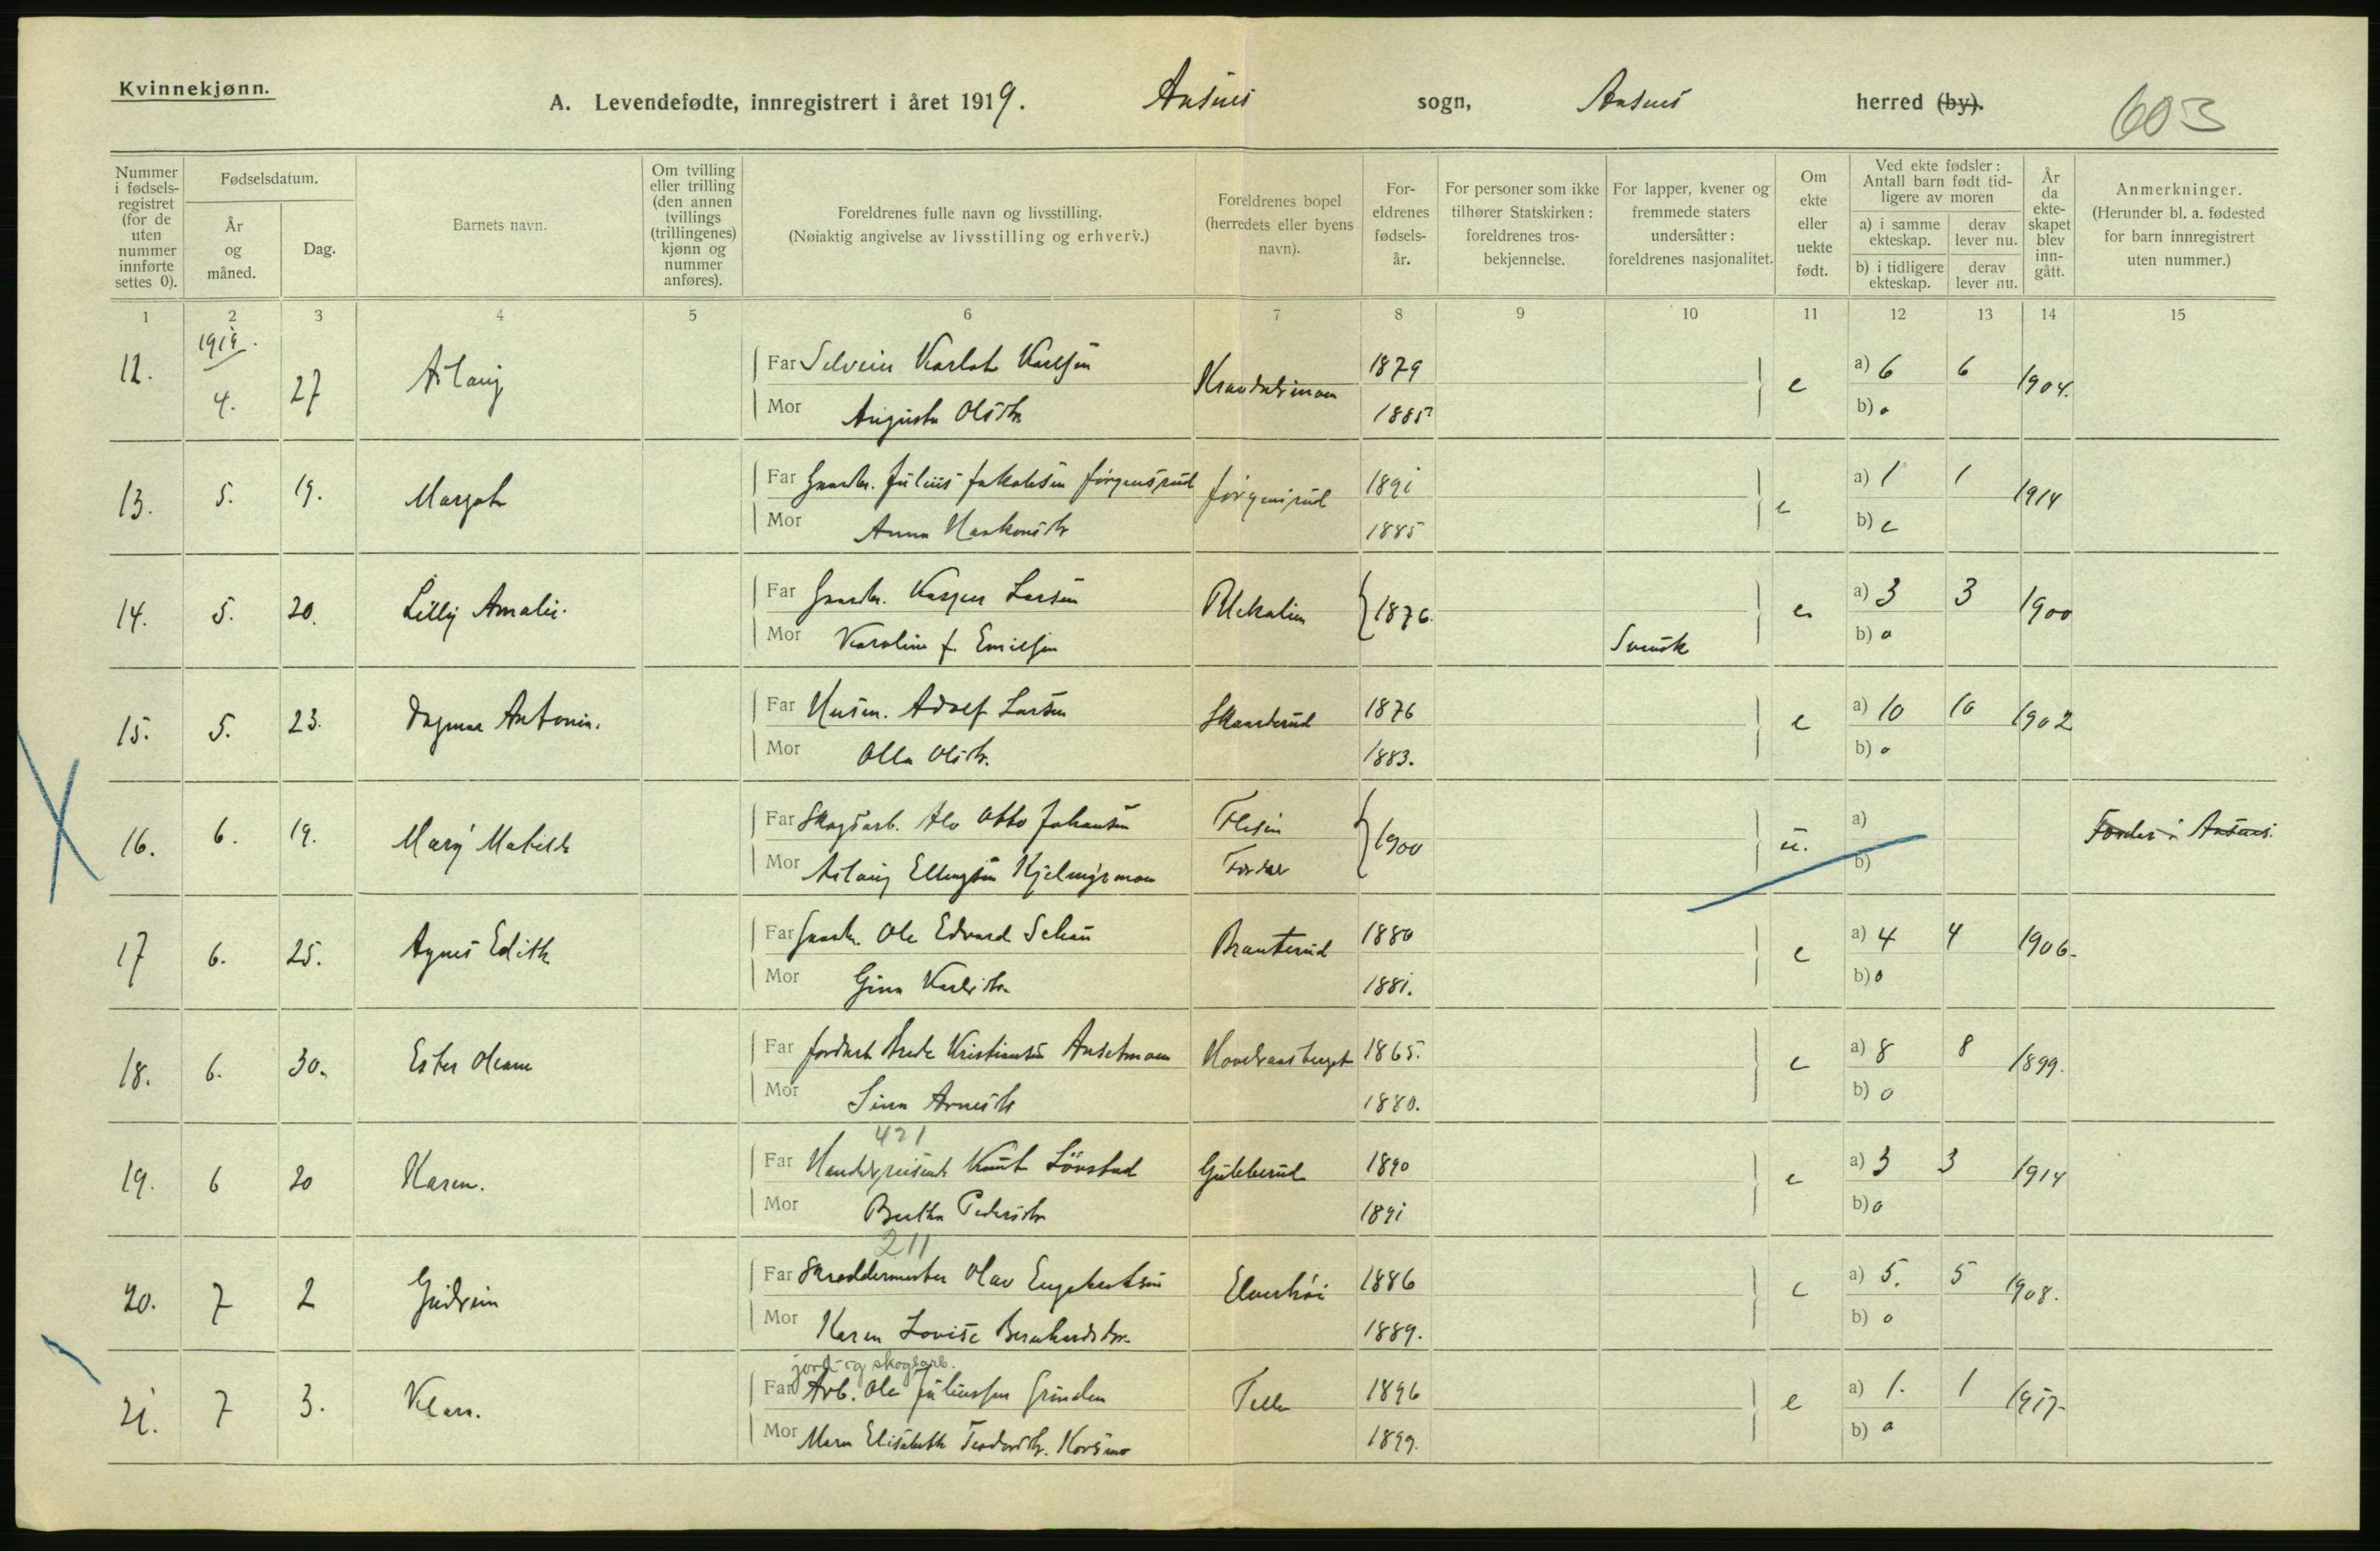 Kvinnekjønn.
A. Levendefødte, innregistrert i året 1919. Aasnes sogn, Aasnes herred (by).
603
Nummer i fødsels-registret (for de uten nummer innførte settes 0).
Fødselsdatum.
År og måned.
Dag.
Barnets navn.
Om tvilling eller trilling (den annen tvillings (trillingenes) kjønn og nummer anføres).
Foreldrenes fulle navn og livsstilling.
(Nøiaktig angivelse av livsstilling og erhverv.)
Foreldrenes bopel (herredets eller byens navn).
For-eldrenes fødsels-år.
For personer som ikke tilhører Statskirken: foreldrenes tros-bekjennelse.
For lapper, kvener og fremmede staters undersåtter: foreldrenes nasjonalitet.
Om ekte eller uekte født.
Ved ekte fødsler: Antall barn født tid-ligere av moren
a) i samme ekteskap.
derav lever nu.
b) i tidligere ekteskap.
derav lever nu.
År da ekte-skapet blev inn-gått.
Anmerkninger.
(Herunder bl. a. fødested for barn innregistrert uten nummer.)
1 2 3 4 5 6 7 8 9 10 11 12 13 14 15
1919.
12. 4. 27 Aslaug Far Selveier Karlot Karlsen 1879 e a) 6 6 1904.
Mor Augusta Olsdtr. 1885 b) o
13. 5. 19. Margot Far Gaardbr. Julius Jakobsen Jørgensrud Jørgensrud 1891 e a) 1 1 1914
Mor Anna Haakonsdtr 1885 b)
14. 5. 20. Lilly Amalie. Far Gaardbr. Kasper Larsen 1876. e a) 3 3 1900
Mor Karoline f. Emilsen Svensk b) o
15. 5. 23. Dagmar Antonie. Far Husm. Adolf Larsen Skaarderud 1876 e a) 10 10 1902
Mor Olla Olsdtr. 1883. b) o
16. 6. 19. Mary Mathilde Far Skogsarb. Alv Otto Johansen Flesen 1900 u. a)
Mor Aslaug Ellingsen Kjelmysmoen b)
17 6. 25. Agnes Edith Far Gaardbr. Ole Edvard Schøu Branterud 1880 e a) 4 4 1906.
Mor Gina Karlsdtr. 1881. b) o
18. 6. 30. Ester Oleane Far Jordarb. Kristiansen Hovelsaasberget 1865. e a) 8 8 1899.
Mor Sina Arnesdtr 1880. b) o
421
19. 6 20 Karen. Far Handelsreisende Knut Løvstad Gulberud 1890 e a) 3 3 1914
Mor Bertha Pedersdtr 1891 b) o
211
20. 7 2 Gudrun Far Skreddermester Olav Engebretsen Elverhøi 1886 e a) 5. 5 1908.
Mor Karen Lovise Bernhardsdtr. 1889. b) o
jord- og skogsarb.
21. 7 3. Klara. Far Arb. Ole Juliussen Grinden 1896 e a) 1. 1 1917.
Mor Maren Elisabeth Teodorsdtr. Korsmo 1899. b) o